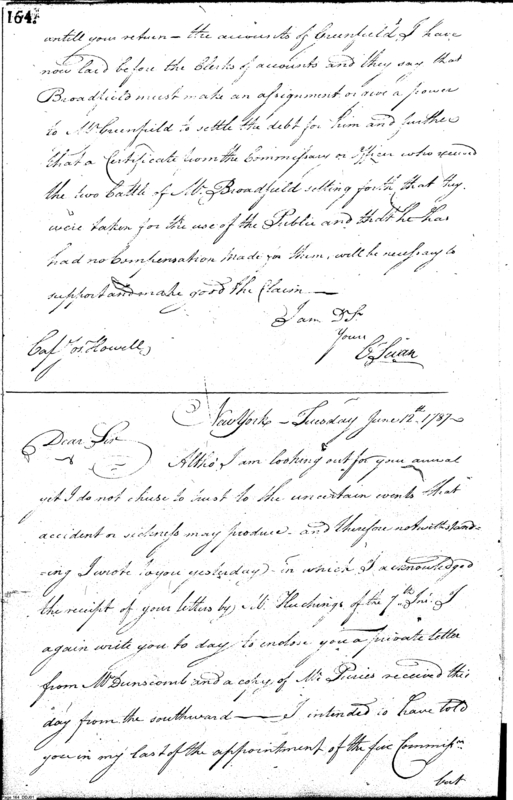 164.
untill your return – the accounts of Greenfield, I have
now laid before the Clerks of accounts and they say that
Broadfield must make an assignment or give a power
to Mr Greenfield to settle the debt for him and further
that a Certificate from the Commissary or officer who received
the two Cattle of Mr Broadfield setting forth that they
were taken for the use of the Public and that he has
had no Compensation made for them, will be necessary to
support and make good the Claim. —
I am Dr Sr
Yours
C: Swan
Capt Jos. Howell
New York – Tuesday June 12th 1787
Dear Sir
Altho' I am looking out for your arrival
yet I do not chuse to trust to the uncertain events that
accident or sickness may produce – and therefore notwithstand-
ing I wrote to you yesterday – in which I acknowledged
the receipt of your letters by Mr. Hutchings of the 7th Inst. I
again write you to day to enclose you a private letter
from Mr Dunscomb and a copy of Mr Pieries received this
day from the southward —— I intended to have told
you in my last of the appointment of the five Commissrs
but